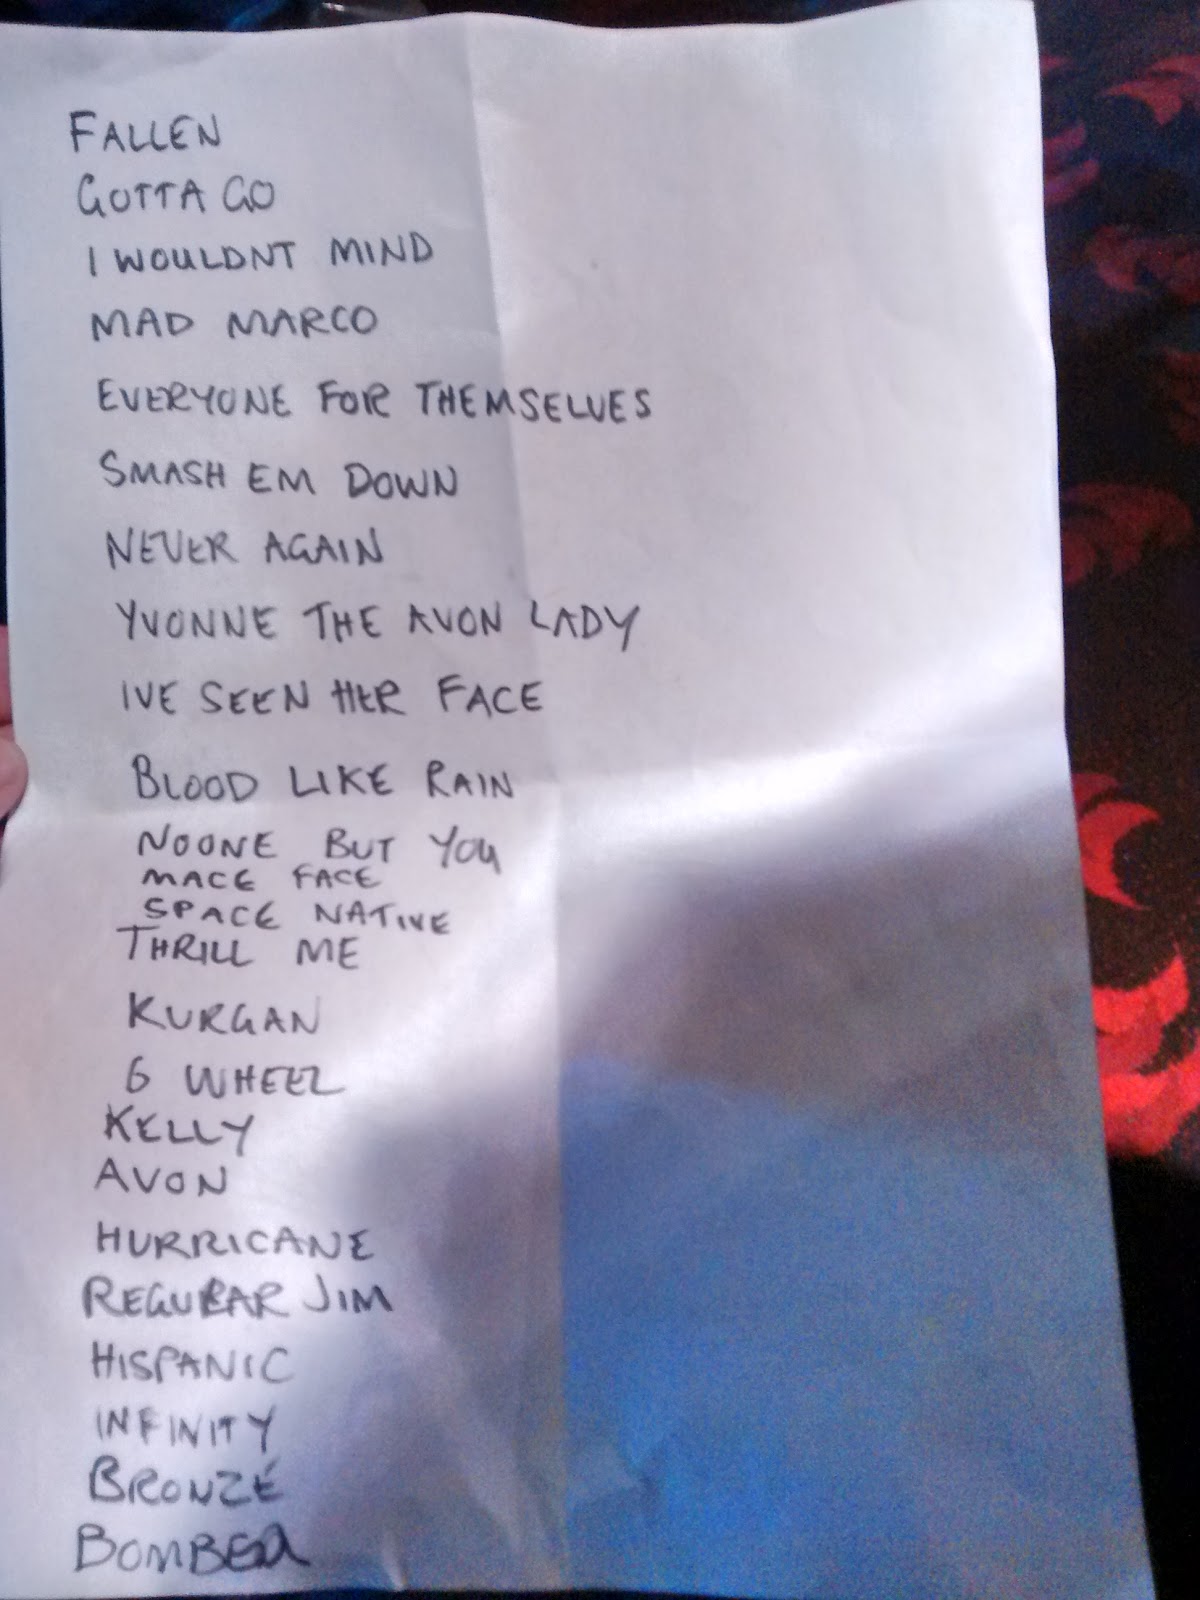 FALLEN
GOTTA GO
I WOULDNT MIND
MAD MARCO
EVERYONE FOR THEMSELVES
SMASH EM DOWN
NEVER AGAIN
YVONNE THE AVON LADY
IVE SEEN HER FACE
BLOOD LIKE RAIN
NOONE BUT YOU
MACE FACE
SPACE NATIVE
THRILL ME
KURGAN
6 WHEEL
KELLY
AVON
HURRICANE
REGULAR JIM
HISPANIC
INFINITY
BRONZE
BOMBER